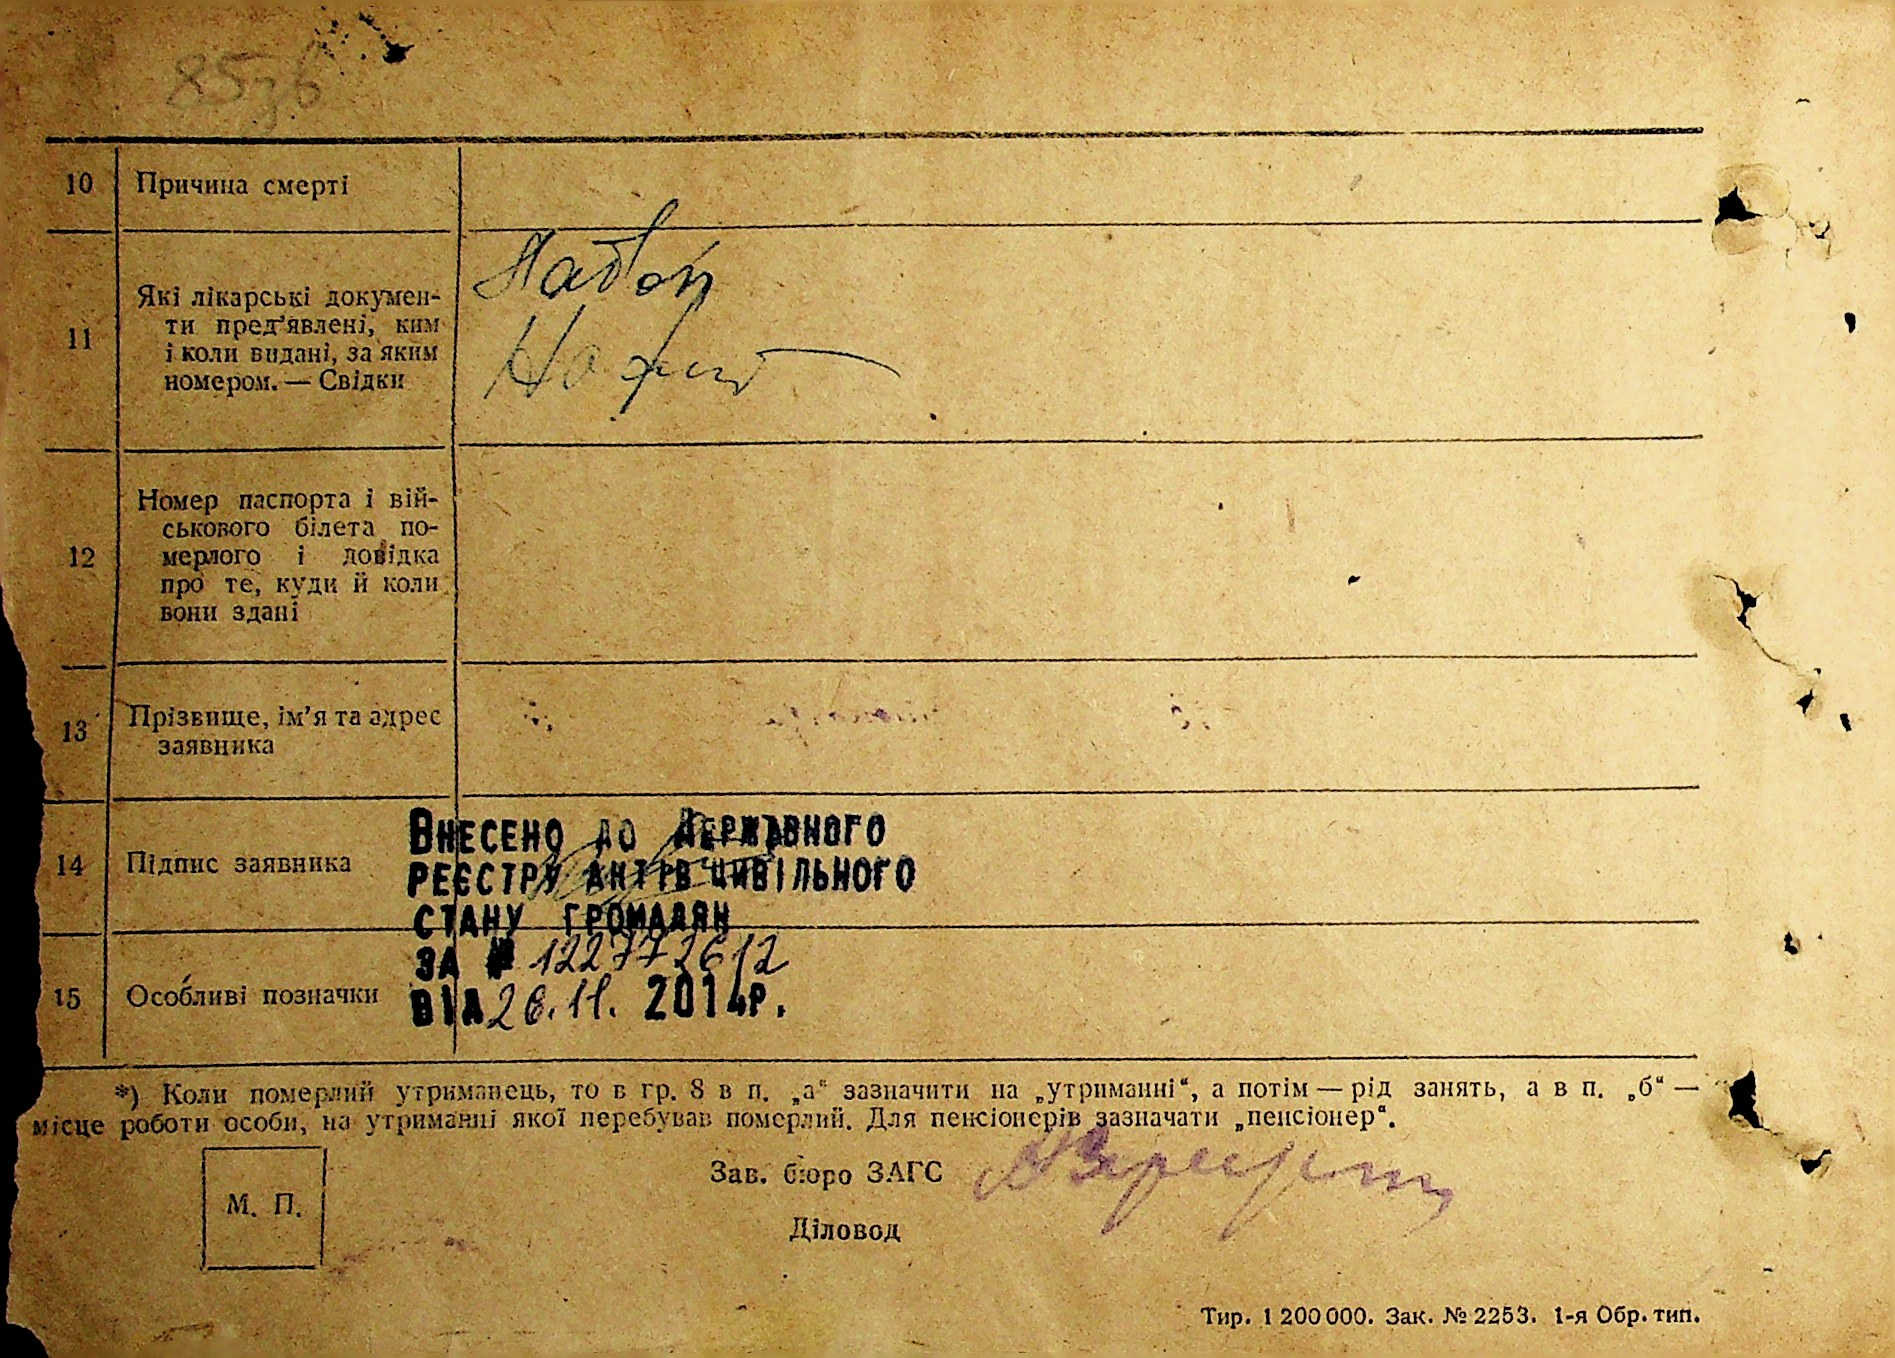 10 Причина смерті
11 Які лікарські докумен-
ти пред'явлені, ким
і коли видані, за яким
номером. — Свідки
12 Номер паспорта і вій-
ськового білета по-
мерлого і довідка
про те, куди й коли
вони здані
13 Прізвище, ім'я та адрес
заявника
14 Підпис заявника
ВНЕСЕНО ДО ДЕРЖАВНОГО
РЕЄСТРУ АКТІВ ЦИВІЛЬНОГО
СТАНУ ГРОМАДЯН
ЗА № 122772612
15 Особливі позначки
ВІД 26.11. 2014Р.
*) Коли померлий утриманець, то в гр. 8 в п. „а“ зазначити на „утриманні“, а потім — рід занять, а в п. „б“ —
місце роботи особи, на утриманні якої перебував померлий. Для пенсіонерів зазначати „пенсіонер“.
Зав. бюро ЗАГС
М. П.
Діловод
Тир. 1 200 000. Зак. № 2253. 1-я Обр. тип.